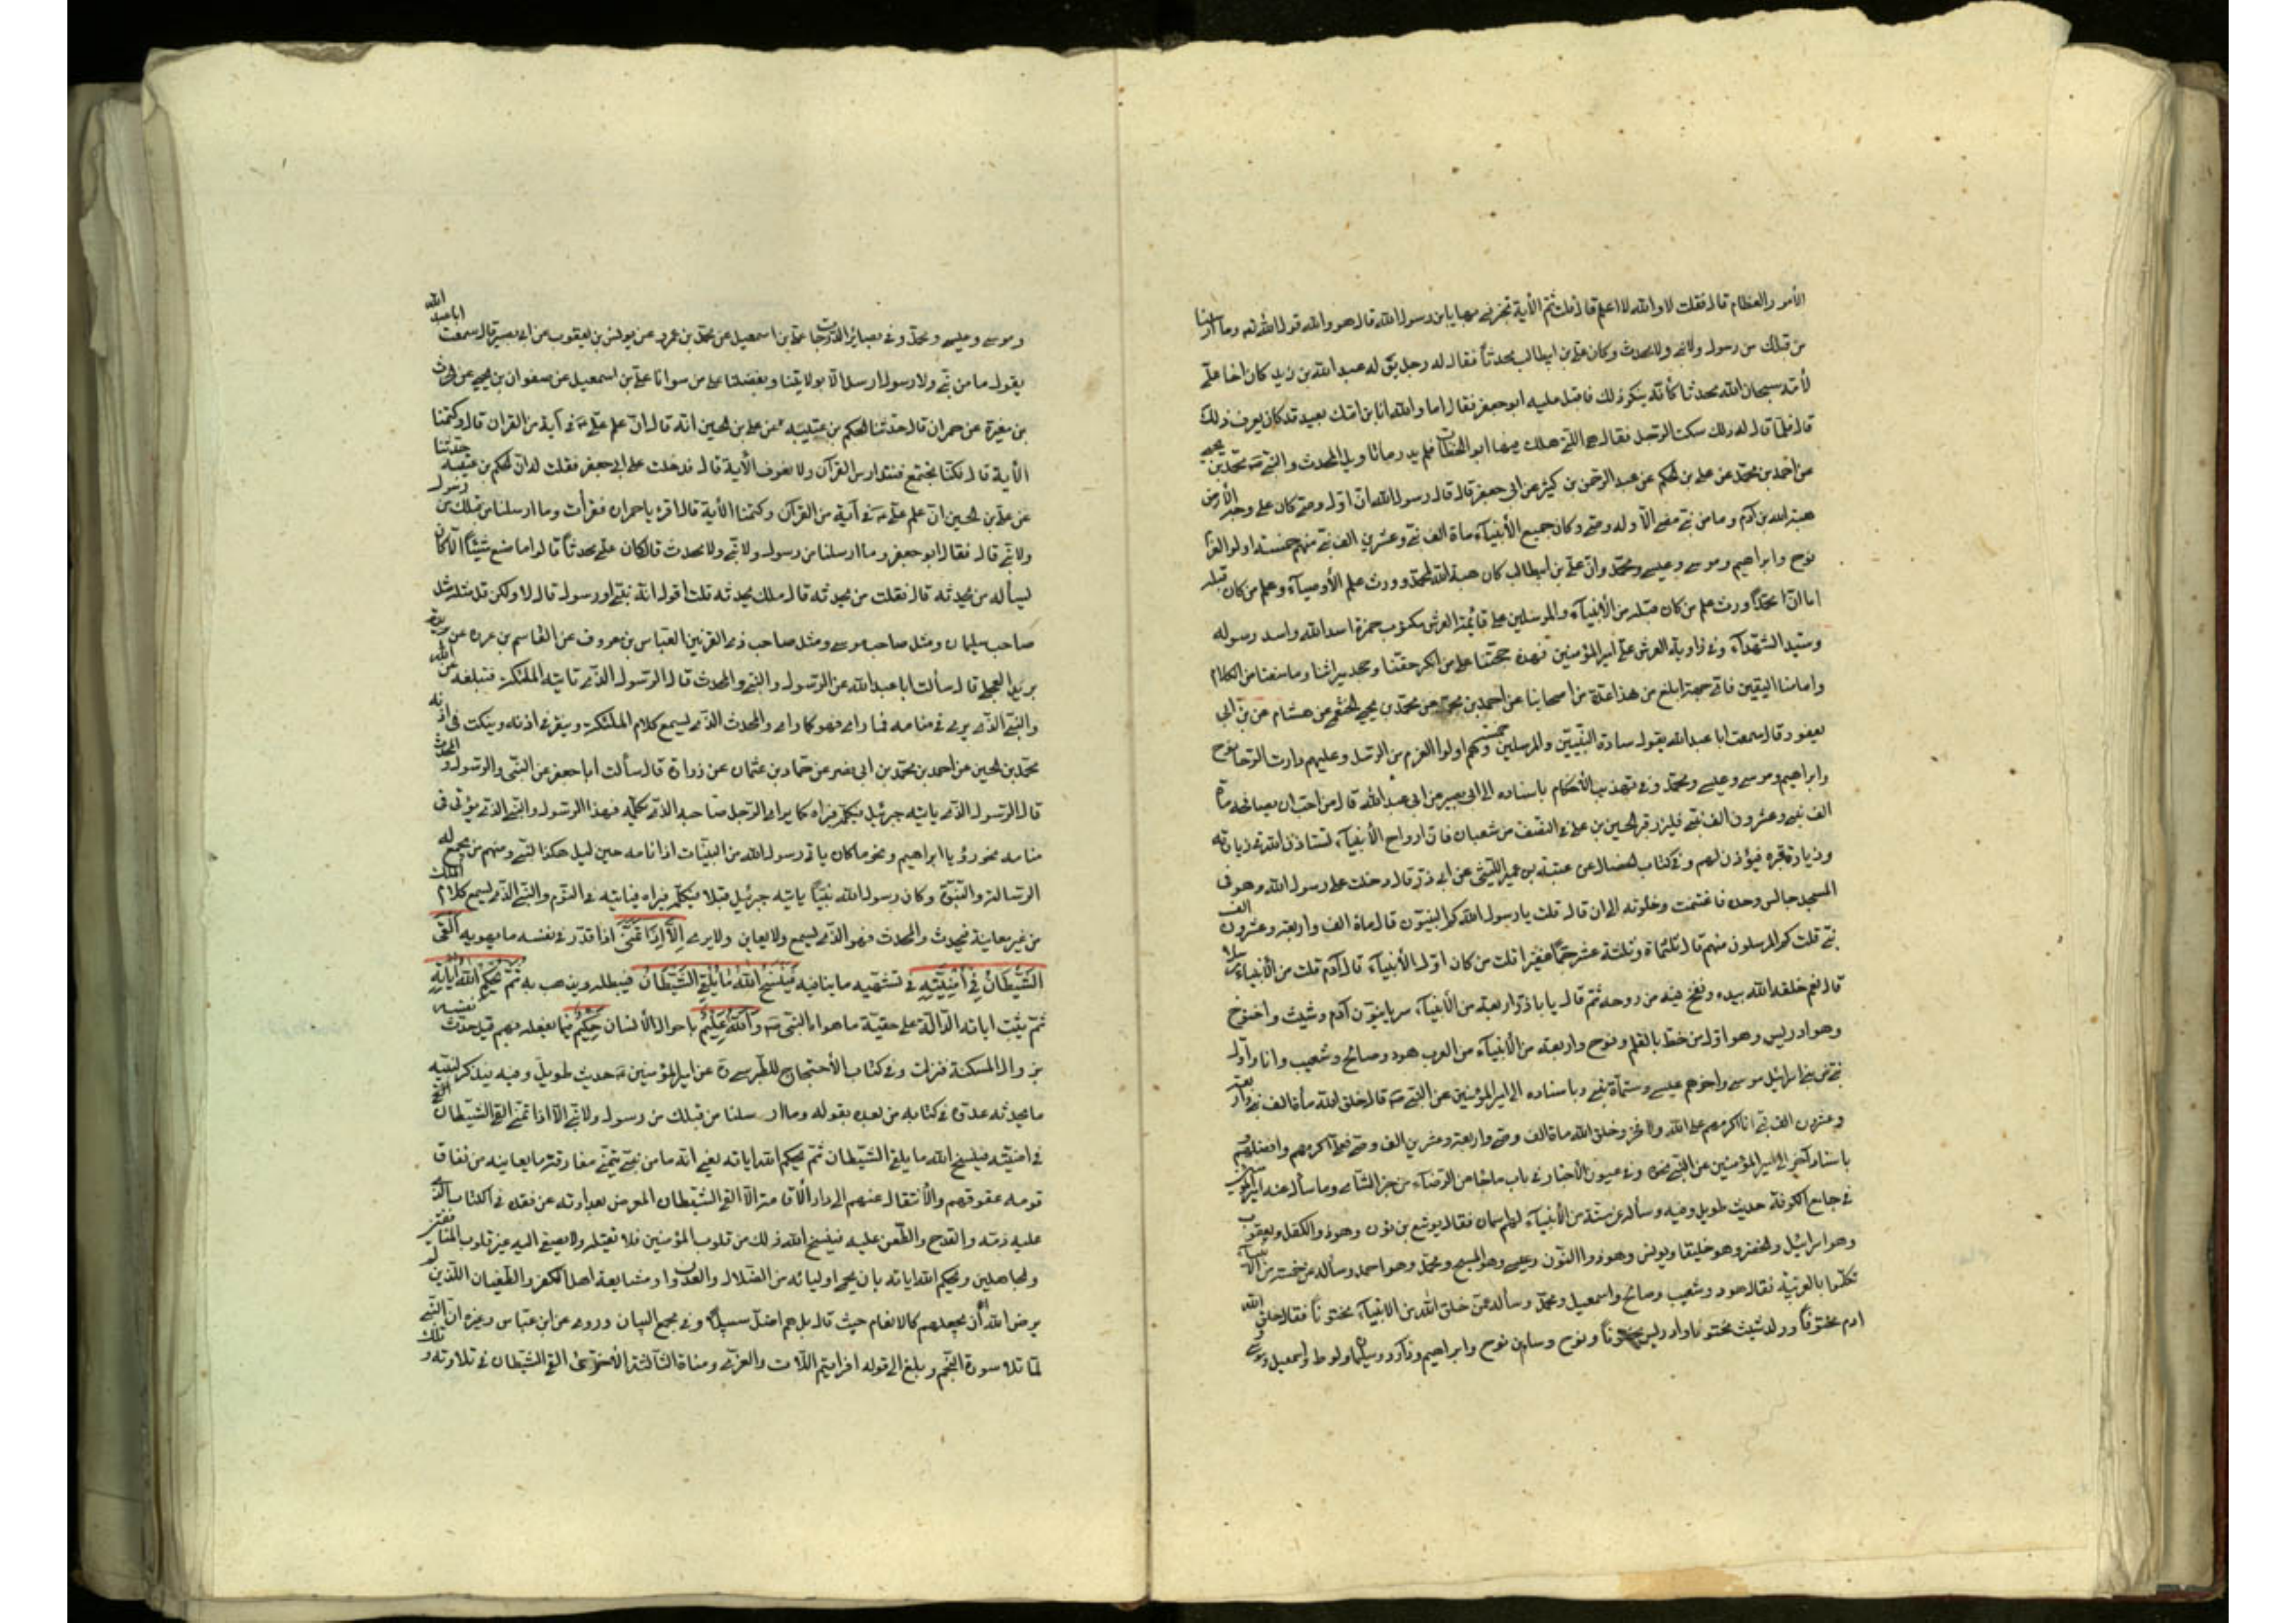 الأمور والعظام قال فقلت لا والله لا اعلم قال قلت ثم الأية تخبرني بها يا بن رسول الله قال هو والله قول الله تع وما ارسلنا
من قبلك من رسول ولا نبي ولا محدث وكان علي بن ابيطالب محدثاً فقال له رجل يق له عبد الله بن زيد كان اخا علي
لأمه سبحان الله محدثا كأنه ينكر ذلك فاقبل عليه ابو جعفر فقال اما والله ان ابن امك بعيد قد كان يعرف ذلك
قال فلما قال له ذلك سكت الرجل فقال هي التي هلك فيها ابو الخطاب فلم يدر ما تأويل المحدث والنبي محمد بن يحيى
عن احمد بن محمد عن علي بن الحكم عن عبد الرحمن بن كثير عن ابي جعفر قال قال رسول الله ان اول وصي كان على وجه الأرض
هبة الله بن آدم وما من نبي مضى الا وله وصي وكان جميع الأنبياء مأة الف نبي وعشرين الف نبي منهم خمسة اولوا العزم
نوح وابراهيم وموسى وعيسى ومحمد وان علي بن ابيطالب كان هبة الله لمحمد وورث علم الأوصياء وعلم من كان قبله
اما ان محمداً ورث علم من كان قبله من الأنبياء والمرسلين على قائمة العرش مكتوب حمزة اسد الله واسد رسوله
وسيد الشهداء وفي زاوية العرش علي امير المؤمنين فهذه حجتنا على من انكر حقنا وجحد ميراثنا وما منعنا من الكلام
وامامنا اليقين فاي حجة ابلغ من هذا عدة من اصحابنا عن احمد بن محمد عن محمد بن يحيى الخثعمي عن هشام عن بن ابي
يعفور قال سمعت ابا عبد الله يقول سادة النبيين والمرسلين خمسة وهم اولوا العزم من الرسل وعليهم دارت الرحا نوح
وابراهيم وموسى وعيسى ومحمد وفي تهذيب الأحكام باسناده الى ابي بصير عن ابي عبد الله قال من احب ان يصافحه مأة
الف نبي وعشرون الف نبي فليزر قبر الحسين بن علي في النصف من شعبان فان ارواح الأنبياء تستأذن الله في زيارته
وزيارة قبره فيؤذن لهم وفي كتاب الخصال عن عتبة بن عمير الليثي عن ابي ذر قال دخلت على رسول الله وهو في
المسجد جالس وحده فاغتنمت وخلوته الى ان قال قلت يا رسول الله كم النبيون قال مأة الف واربعة وعشرون الف
نبي قلت كم المرسلون منهم قال ثلثمأة وثلثة عشر جماً غفيرا قلت من كان اول الأنبياء قال آدم قلت من الأنبياء مرسلا
قال نعم خلقه الله بيده ونفخ فيه من روحه ثم قال يا باذر اربعة من الأنبياء سريانيون آدم وشيث واخنوخ
وهو ادريس وهو اول من خط بالقلم ونوح واربعة من الأنبياء من العرب هود وصالح وشعيب وانا واول
نبي من بني اسرائيل موسى واخرهم عيسى وستمأة نبي وباسناده الى امير المؤمنين عن النبي ص قال خلق الله مأة الف نبي واربعة
وعشرون الف نبي انا اكرمهم على الله ولا فخر وخلق الله مأة الف وصي واربعة وعشرين الف وصي فعلي اكرمهم وافضلهم
باسناد آخر الى امير المؤمنين عن النبي نحوه وفي عيون الأخبار في باب ما جاء عن الرضاء من خبر الشامي وما سأل عنه امير المؤمنين
في جامع الكوفة حديث طويل وفيه وسأله عن ستة من الأنبياء لهم اسمان فقال يوشع بن نون وهو ذو الكفل ويعقوب
وهو اسرائيل والخضر وهو خليقا ويونس وهو ذو االنون وعيسى وهو المسيح ومحمد وهو احمد وسأله عن خمسة من الأنبياء
تكلموا بالعربية فقال هود وشعيب وصالح واسمعيل ومحمد وسأله عمن خلق الله من الانبياء مختوناً فقال خلق الله
ادم مختوناً وولد شيث مختونا وادريس مختوناً ونوح وسام بن نوح وابراهيم وداود وسليمان ولوط واسمعيل وموسى
وموسى وعيسى ومحمد وفي بصائر الدرجات علي بن اسمعيل عن محمد بن عمرو عن يونس بن يعقوب عن ابي بصير قال سمعت ابا عبد الله
يقول ما من نبي ولا رسول ارسل الا بولايتنا وبفضلنا على من سوانا علي بن اسمعيل عن صفوان بن يحيى عن الحرث
بن مغيرة عن حمران قال حدثنا الحكم بن عتيبة عن علي بن الحسين انه قال ان علم علي في آية من القران قال وكتمنا
الأية قال فكنا نجتمع فنتدارس القرآن ولا نعرف الأية قال فدخلت على ابي جعفر فقلت له ان الحكم بن عتيبة حدثنا
عن علي بن الحسين ان علم علي في آية من القرآن وكتمنا الأية قال اقرء يا حمران فقرأت وما ارسلنا من قبلك من رسول
ولا نبي قال فقال ابو جعفر وما ارسلنا من رسول ولا نبي ولا محدث قال كان علي محدثاً قالوا ما صنع شيئاً الا كان
يسأله من يحدثه قال فقلت من يحدثه قال ملك يحدثه قلت اقول انه نبي اور سول قال لا ولكن قل مثله مثل
صاحب سليمان ومثل صاحب موسى ومثل صاحب ذي القرنين العباس بن معروف عن القاسم بن عروة عن
بريد العجلي قال سألت ابا عبد الله عن الرسول والنبي والمحدث قال الرسول الذي تاتيه الملئكة فتبلغه عن الله
والنبي الذي يرى في منامه فما راى فهو كما راى والمحدث الذي يسمع كلام الملئكة وينقر في اذنه وينكت في اذنه
محمد بن الحسين عن احمد بن محمد بن ابي نصر عن حماد بن عثمان عن زرارة قال سألت ابا جعفر عن النبي والرسول والمحدث
قال الرسول الذي يأتيه جبرئيل فيكلمه فيراه كما يرى الرجل صاحبه الذي يكلمه فهذا الرسول والنبي الذي يؤتى في
منامه نحو رؤيا ابراهيم ونحو ما كان ياتي رسول الله من البينات اذا نامه حين ليل هكذا النبي ومنهم من يجمع له
الرسالة والنبوة وكان رسول الله نبياً ياتيه جبرئيل قبلا فيكلمه فيراه فياتيه في النوم والنبي الذي يسمع كلام الملك
من غير معاينة فيحدث والمحدث فهو الذي يسمع ولا يعاين ولا يرى إِلَّا إِذَا تَمَنَّى اذا قدر في نفسه ما يهويه أَلْقَى
الشَّيْطَانُ فِي أُمْنِيَّتِهِ في تشتهيه ما ينافيه فَيَنْسَخُ اللَّهُ مَا يُلْقِي الشَّيْطَانُ فيبطله ويذهب به ثُمَّ يُحْكِمُ اللَّهُ آيَاتِهِ
ثم يثبت اياته الدالة على حقية ما هواه النبي ص وَاللَّهُ عَلِيمٌ باحوال الأنسان حَكِيمٌ فيما يفعله بهم قيل حدث نفسه
بزوال المسكنة فنزلت وفي كتاب الأحتجاج للطبرسي ره عن امير المؤمنين حديث طويل وفيه فيذكر لنبيه
ما يحدثه عدوه في كتابه من بعده بقوله وما ارسلنا من قبلك من رسول ولا نبي الا اذا تمنى القي الشيطان
في امنيته فينسخ الله ما يلقي الشيطان ثم يحكم الله اياته يعني انه ما من نبي يتمنى مفارقة ما يعاينه من نفاق
قومه عقوقهم والأنتقال عنهم الى دار الأقامة الا القى الشيطان المعرض بعداوته عند فقده في الكتاب الذي
عليه ذمه والقدح والطعن عليه فينسخ الله ذلك من قلوب المؤمنين فلا تقبله ولا يصغي اليه غير قلوب المنافقين
والجاهلين ويحكم الله اياته بان يحمي اوليائه من الضلال والعدوان ومشايعة اهل الكفر والطغيان اللذين
لم يرض الله أن يجعلهم كالانعام حيث قال بل هم اضل سبيلاً وفي مجمع البيان وروى عن ابن عباس وغيره ان النبي
لما تلا سورة النجم وبلغ الى قوله افرايتم اللات والعزى ومناة الثالثة الأخرى القى الشيطان في تلاوته تلك